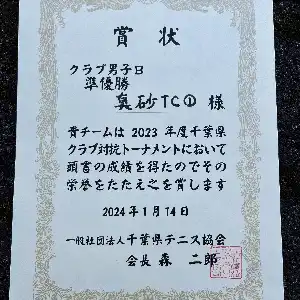 賞状
クラブ男子B
準優勝
真砂TC① 様
貴チームは2023年度千葉県
クラブ対抗トーナメントにおいて
頭書の成績を得たのでその
栄誉をたたえ之を賞します
2024年1月14日
一般社団法人千葉県テニス協会
会長 森 二郎